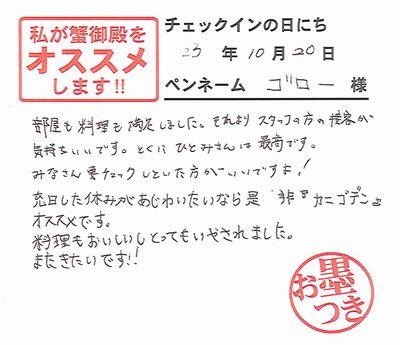 私が蟹御殿を
オススメ
します!!
チェックインの日にち
23年10月20日
ペンネーム ゴロー 様
部屋も料理も満足しました。それより スタッフの方の接客が
気持ちいいです。とくに ひとみさんは 最高です。
みなさん要チェックしといた方がいいですよ!
充日した休みがあじわいたいなら是非『カニゴテン』
オススメです。
料理もおいしいしとってもいやされました。
またきたいです!!
お墨つき